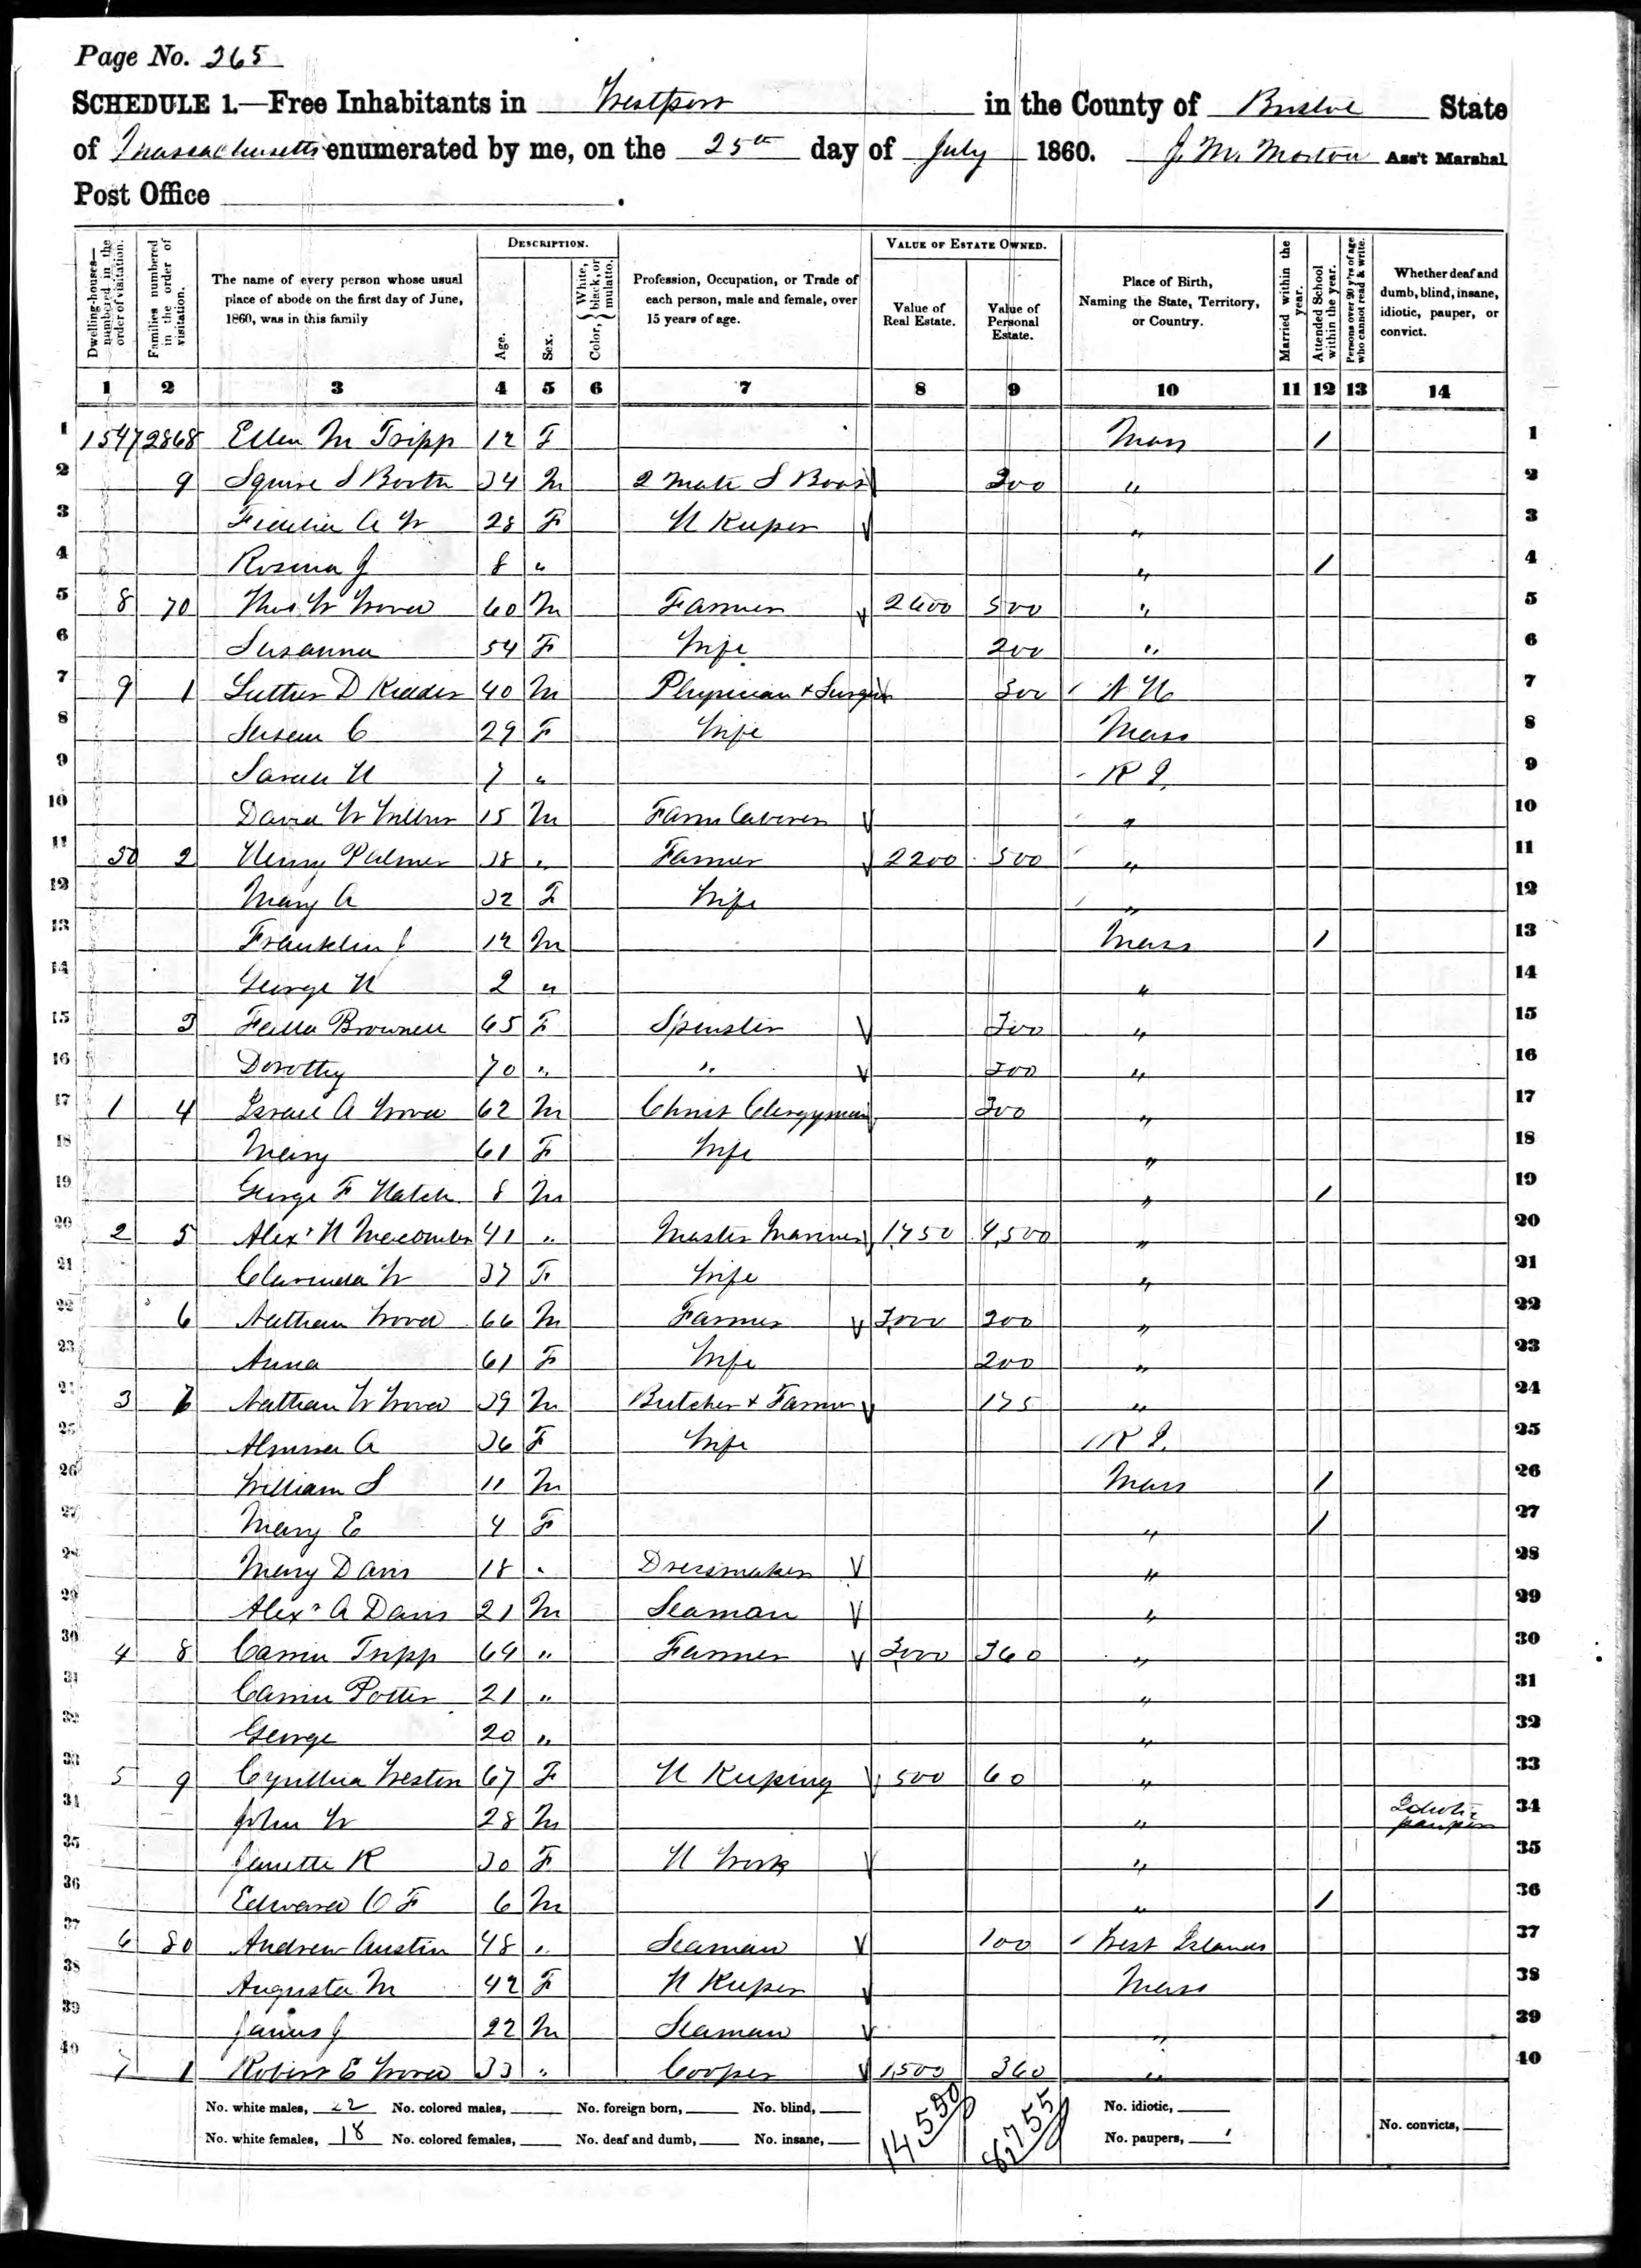 Page No. 265
SCHEDULE 1.—Free Inhabitants in Westport in the County of Bristol State
of Massachusetts enumerated by me, on the 25th day of July 1860. J. M. Morton Ass't Marshal
Post Office .
Dwelling-houses—numbered in the order of visitation. Families numbered in the order of visitation. The name of every person whose usual place of abode on the first day of June, 1860, was in this family DESCRIPTION. Age. Sex. Color, { White, black, or mulatto. Profession, Occupation, or Trade of each person, male and female, over 15 years of age. VALUE OF ESTATE OWNED. Value of Real Estate. Value of Personal Estate. Place of Birth, Naming the State, Territory, or Country. Married within the year. Attended School within the year. Persons over 20 y'rs of age who cannot read & write. Whether deaf and dumb, blind, insane, idiotic, pauper, or convict.
1 2 3 4 5 6 7 8 9 10 11 12 13 14
1 1547 2868 Ellen M Tripp 12 F Mass / 1
2 9 Squire S Booth 34 M 2 Mate S Boat 300 " 2
3 Fidelia A W 28 F H Keeper " 3
4 Rosina J 8 " " / 4
5 8 70 Thos W Wood 60 M Farmer 2600 500 " 5
6 Susanna 54 F Wife 200 " 6
7 9 1 Luther D Kidder 40 M Physician & Surgeon 300 N H 7
8 Susan C 29 F Wife Mass 8
9 Sarah H 7 " R I. 9
10 David W Wilbur 15 M Farm Laborer " 10
11 50 2 Henry Palmer 38 " Farmer 2200 500 " 11
12 Mary A 32 F Wife " 12
13 Franklin J 12 M Mass / 13
14 George H 2 " " 14
15 3 Brownell 65 F Spinster 300 " 15
16 Dorothy 70 " " 300 " 16
17 1 4 Israel A Wood 62 M Christ Clergyman 300 " 17
18 Mary 61 F Wife " 18
19 George F Hatch 8 M " / 19
20 2 5 Alexr H Macomber 41 " Master Mariner 1,750 4,500 " 20
21 Clarinda W 37 F Wife " 21
22 6 Nathan Wood 66 M Farmer 3,000 300 " 22
23 Anna 61 F Wife 200 " 23
24 3 7 Nathan W Wood 39 M Butcher & Farmer 175 " 24
25 Almira A 36 F Wife R I. 25
26 William S 11 M Mass / 26
27 Mary E 4 F " / 27
28 Mary Davis 18 " Dressmaker " 28
29 Alexr A Davis 21 M Seaman " 29
30 4 8 Tripp 64 " Farmer 3,000 360 " 30
31 Potter 21 " " 31
32 George 20 " " 32
33 5 9 Cynthia Weston 67 F H Keeping 500 60 " 33
34 John W 28 M " Idiotic pauper 34
35 Janette R 30 F H Work " 35
36 Edward O F 6 M " / 36
37 6 80 Andrew Austin 48 " Seaman 100 West Islands 37
38 Augusta M 42 F H Keeper Mass 38
39 James J 22 M Seaman " 39
40 7 1 Robert E Wood 33 " Cooper 1,500 360 " 40
No. white males, 22 No. colored males, No. foreign born, No. blind, No. idiotic,
No. white females, 18 No. colored females, No. deaf and dumb, No. insane, 14550 8,755 No. paupers, 1 No. convicts,